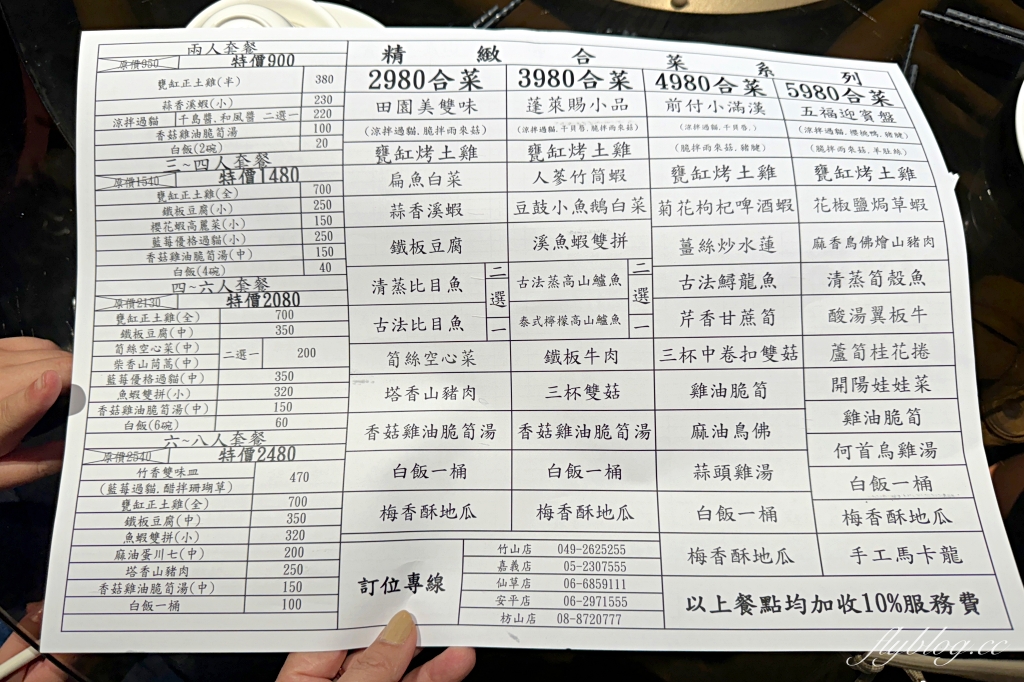 兩人套餐
原價950 特價900
甕缸正土雞(半) 380
蒜香溪蝦(小) 230
涼拌過貓 千島醬.和風醬 二選一 220
香菇雞油脆筍湯 100
白飯(2碗) 20
三~四人套餐
原價1540 特價1480
甕缸正土雞(全) 700
鐵板豆腐(小) 250
櫻花蝦高麗菜(小) 150
藍莓優格過貓(小) 250
香菇雞油脆筍湯(中) 150
白飯(4碗) 40
四~六人套餐
原價2130 特價2080
甕缸正土雞(全) 700
鐵板豆腐(中) 350
筍絲空心菜(中)
柴香山茼萵(中)
二選一 200
藍莓優格過貓(中) 350
魚蝦雙拼(小) 320
香菇雞油脆筍湯(中) 150
白飯(6碗) 60
六~八人套餐
原價2540 特價2480
竹香雙味皿
(藍莓過貓,醋拌珊瑚草)
470
甕缸正土雞(全) 700
鐵板豆腐(中) 350
魚蝦雙拼(小) 320
麻油蛋川七(中) 200
塔香山豬肉 250
香菇雞油脆筍湯(中) 150
白飯一桶 100
精緻合菜系列
2980合菜
田園美雙味
(涼拌過貓,脆拌雨來菇)
甕缸烤土雞
扁魚白菜
蒜香溪蝦
鐵板豆腐
清蒸比目魚
古法比目魚
二選一
筍絲空心菜
塔香山豬肉
香菇雞油脆筍湯
白飯一桶
梅香酥地瓜
3980合菜
蓬萊賜小品
(涼拌過貓,干貝唇,脆拌雨來菇)
甕缸烤土雞
人蔘竹筒蝦
豆鼓小魚鵝白菜
溪魚蝦雙拼
古法蒸高山鱸魚
泰式檸檬高山鱸魚
二選一
鐵板牛肉
三杯雙菇
香菇雞油脆筍湯
白飯一桶
梅香酥地瓜
4980合菜
前付小滿漢
(涼拌過貓,干貝唇,)
(脆拌雨來菇,豬腱)
甕缸烤土雞
菊花枸杞啤酒蝦
薑絲炒水蓮
古法鱘龍魚
芹香甘蔗筍
三杯中卷扣雙菇
雞油脆筍
麻油鳥佛
蒜頭雞湯
白飯一桶
梅香酥地瓜
5980合菜
五福迎賓盤
(涼拌過貓,櫻桃鴨,豬腱)
(脆拌雨來菇,羊肚絲)
甕缸烤土雞
花椒鹽焗草蝦
麻香鳥佛燴山豬肉
清蒸筍殼魚
酸湯翼板牛
蘆筍桂花捲
開陽娃娃菜
雞油脆筍
何首烏雞湯
白飯一桶
梅香酥地瓜
手工馬卡龍
訂位專線
竹山店 049-2625255
嘉義店 05-2307555
仙草店 06-6859111
安平店 06-2971555
枋山店 08-8720777
以上餐點均加收10%服務費
flyblog.cc